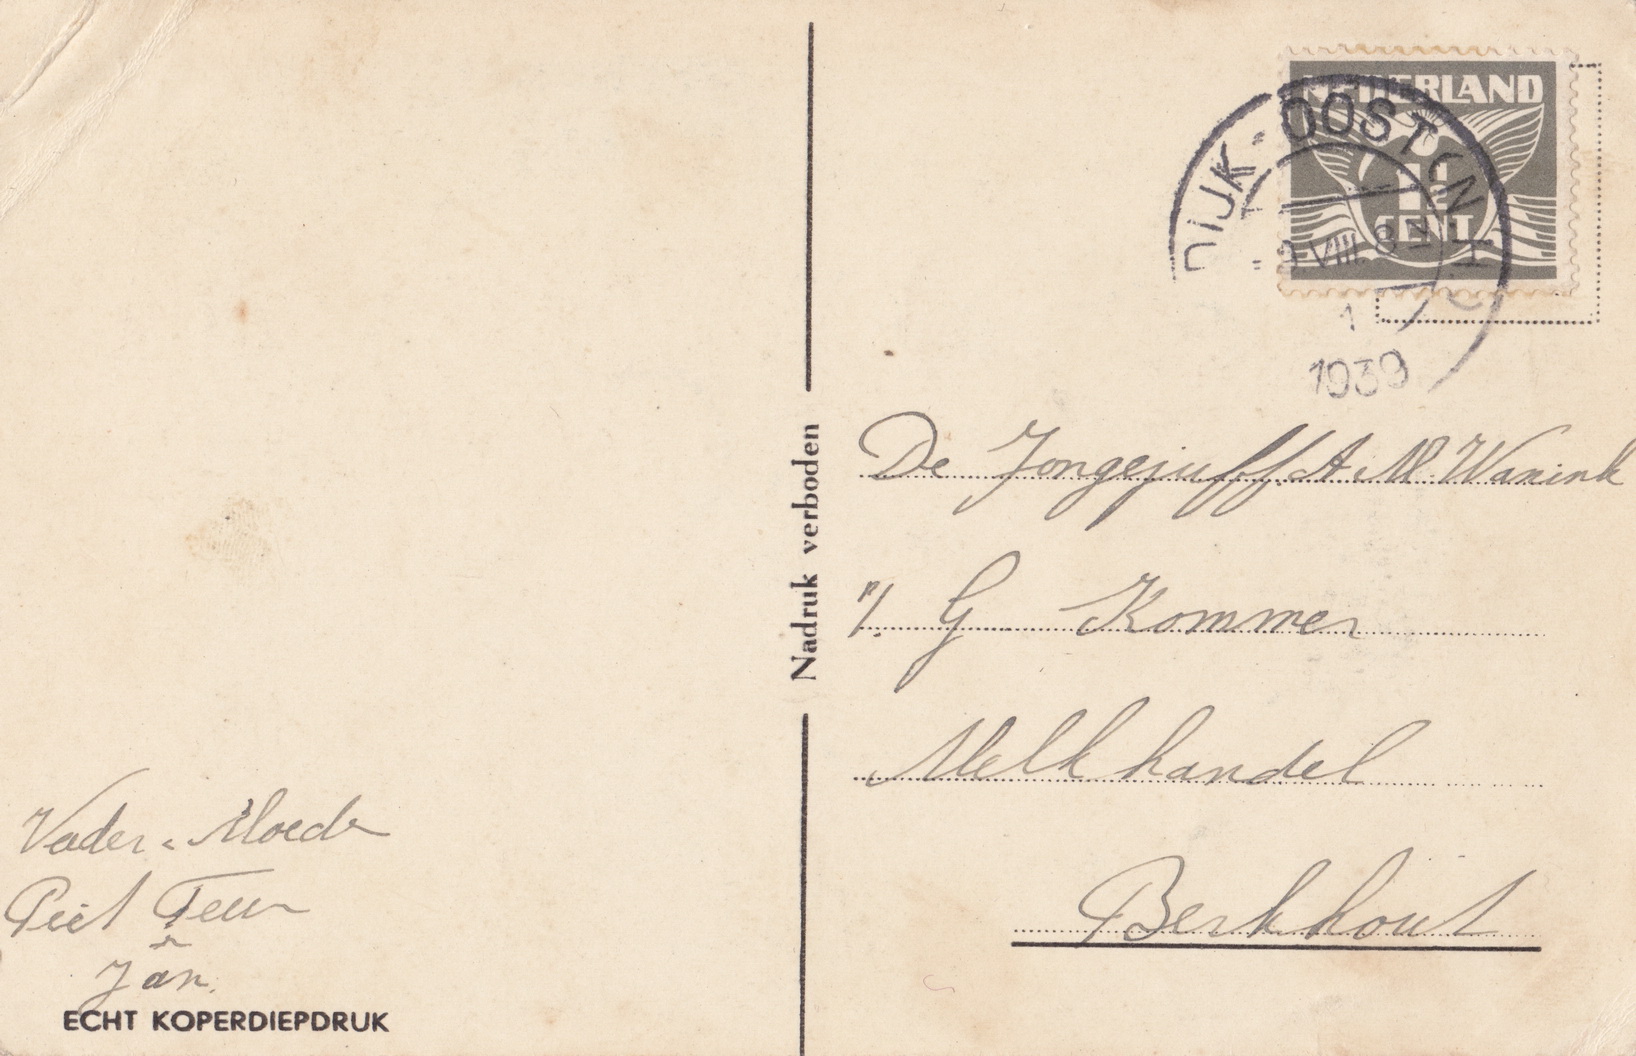 NEDERLAND
1½
CENT
DIJK-OOST
VIII.8
1
1939
Nadruk verboden
De Jongejuff A M Wanink
p/. G Kommer
Melkhandel
Berkhout
Vader. Moeder
Piet Teun
Jan.
ECHT KOPERDIEPDRUK